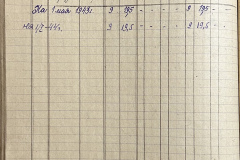 На 1 мая 1943г. 9 19,5 - - - - 9 19,5 - -
на 1/I-44г. 9 19,5 - - - - 9 19,5 - -